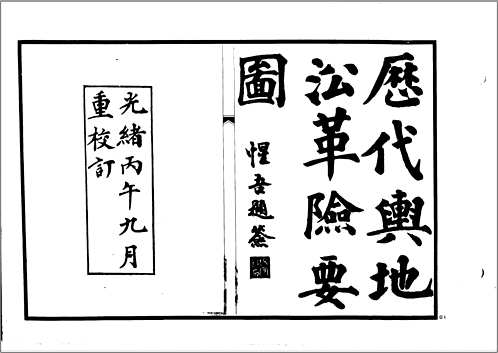 歷代輿地
沿革險要
圖
惺吾題簽
光緒丙午九月
重校訂